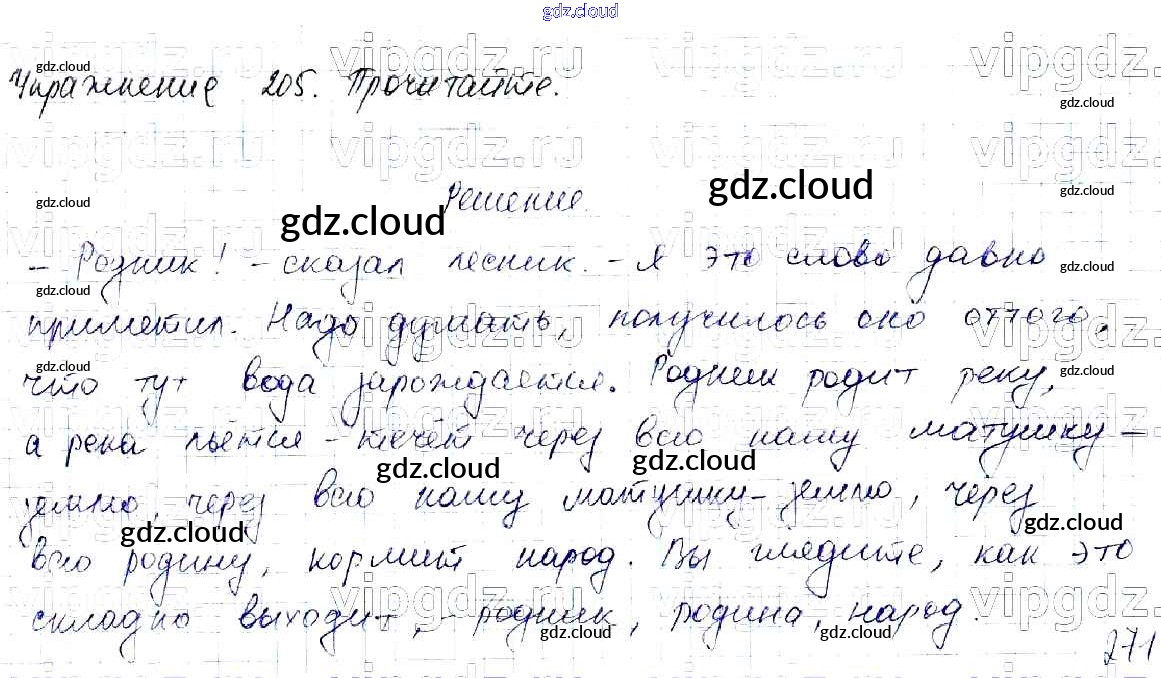 gdz.cloud
Упражнение 205. Прочитайте.
Решение.
- Родник! - сказал лесник. - Я это слово давно
приметил. Надо думать, получилось оно оттого,
что тут вода зарождается. Родник родит реку,
а река льётся - течёт через всю нашу матушку -
землю, через всю нашу матушку - землю, через
всю родину, кормит народ. Вы глядите, как это
складно выходит, - родник, родина, народ.
271